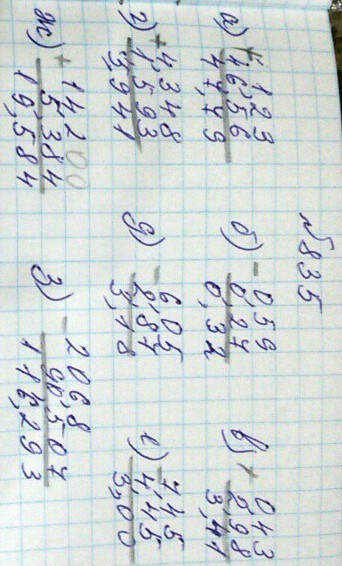 №835
а) + 1,23
46,56
47,79
б) - 0,59
0,27
0,32
в) + 0,43
2,98
3,41
г) + 4,348
1,593
5,941
д) - 6,05
2,87
3,18
е) - 7,45
4,45
3,00
ж) + 14,200
5,384
19,584
з) - 206,8
90,507
116,293